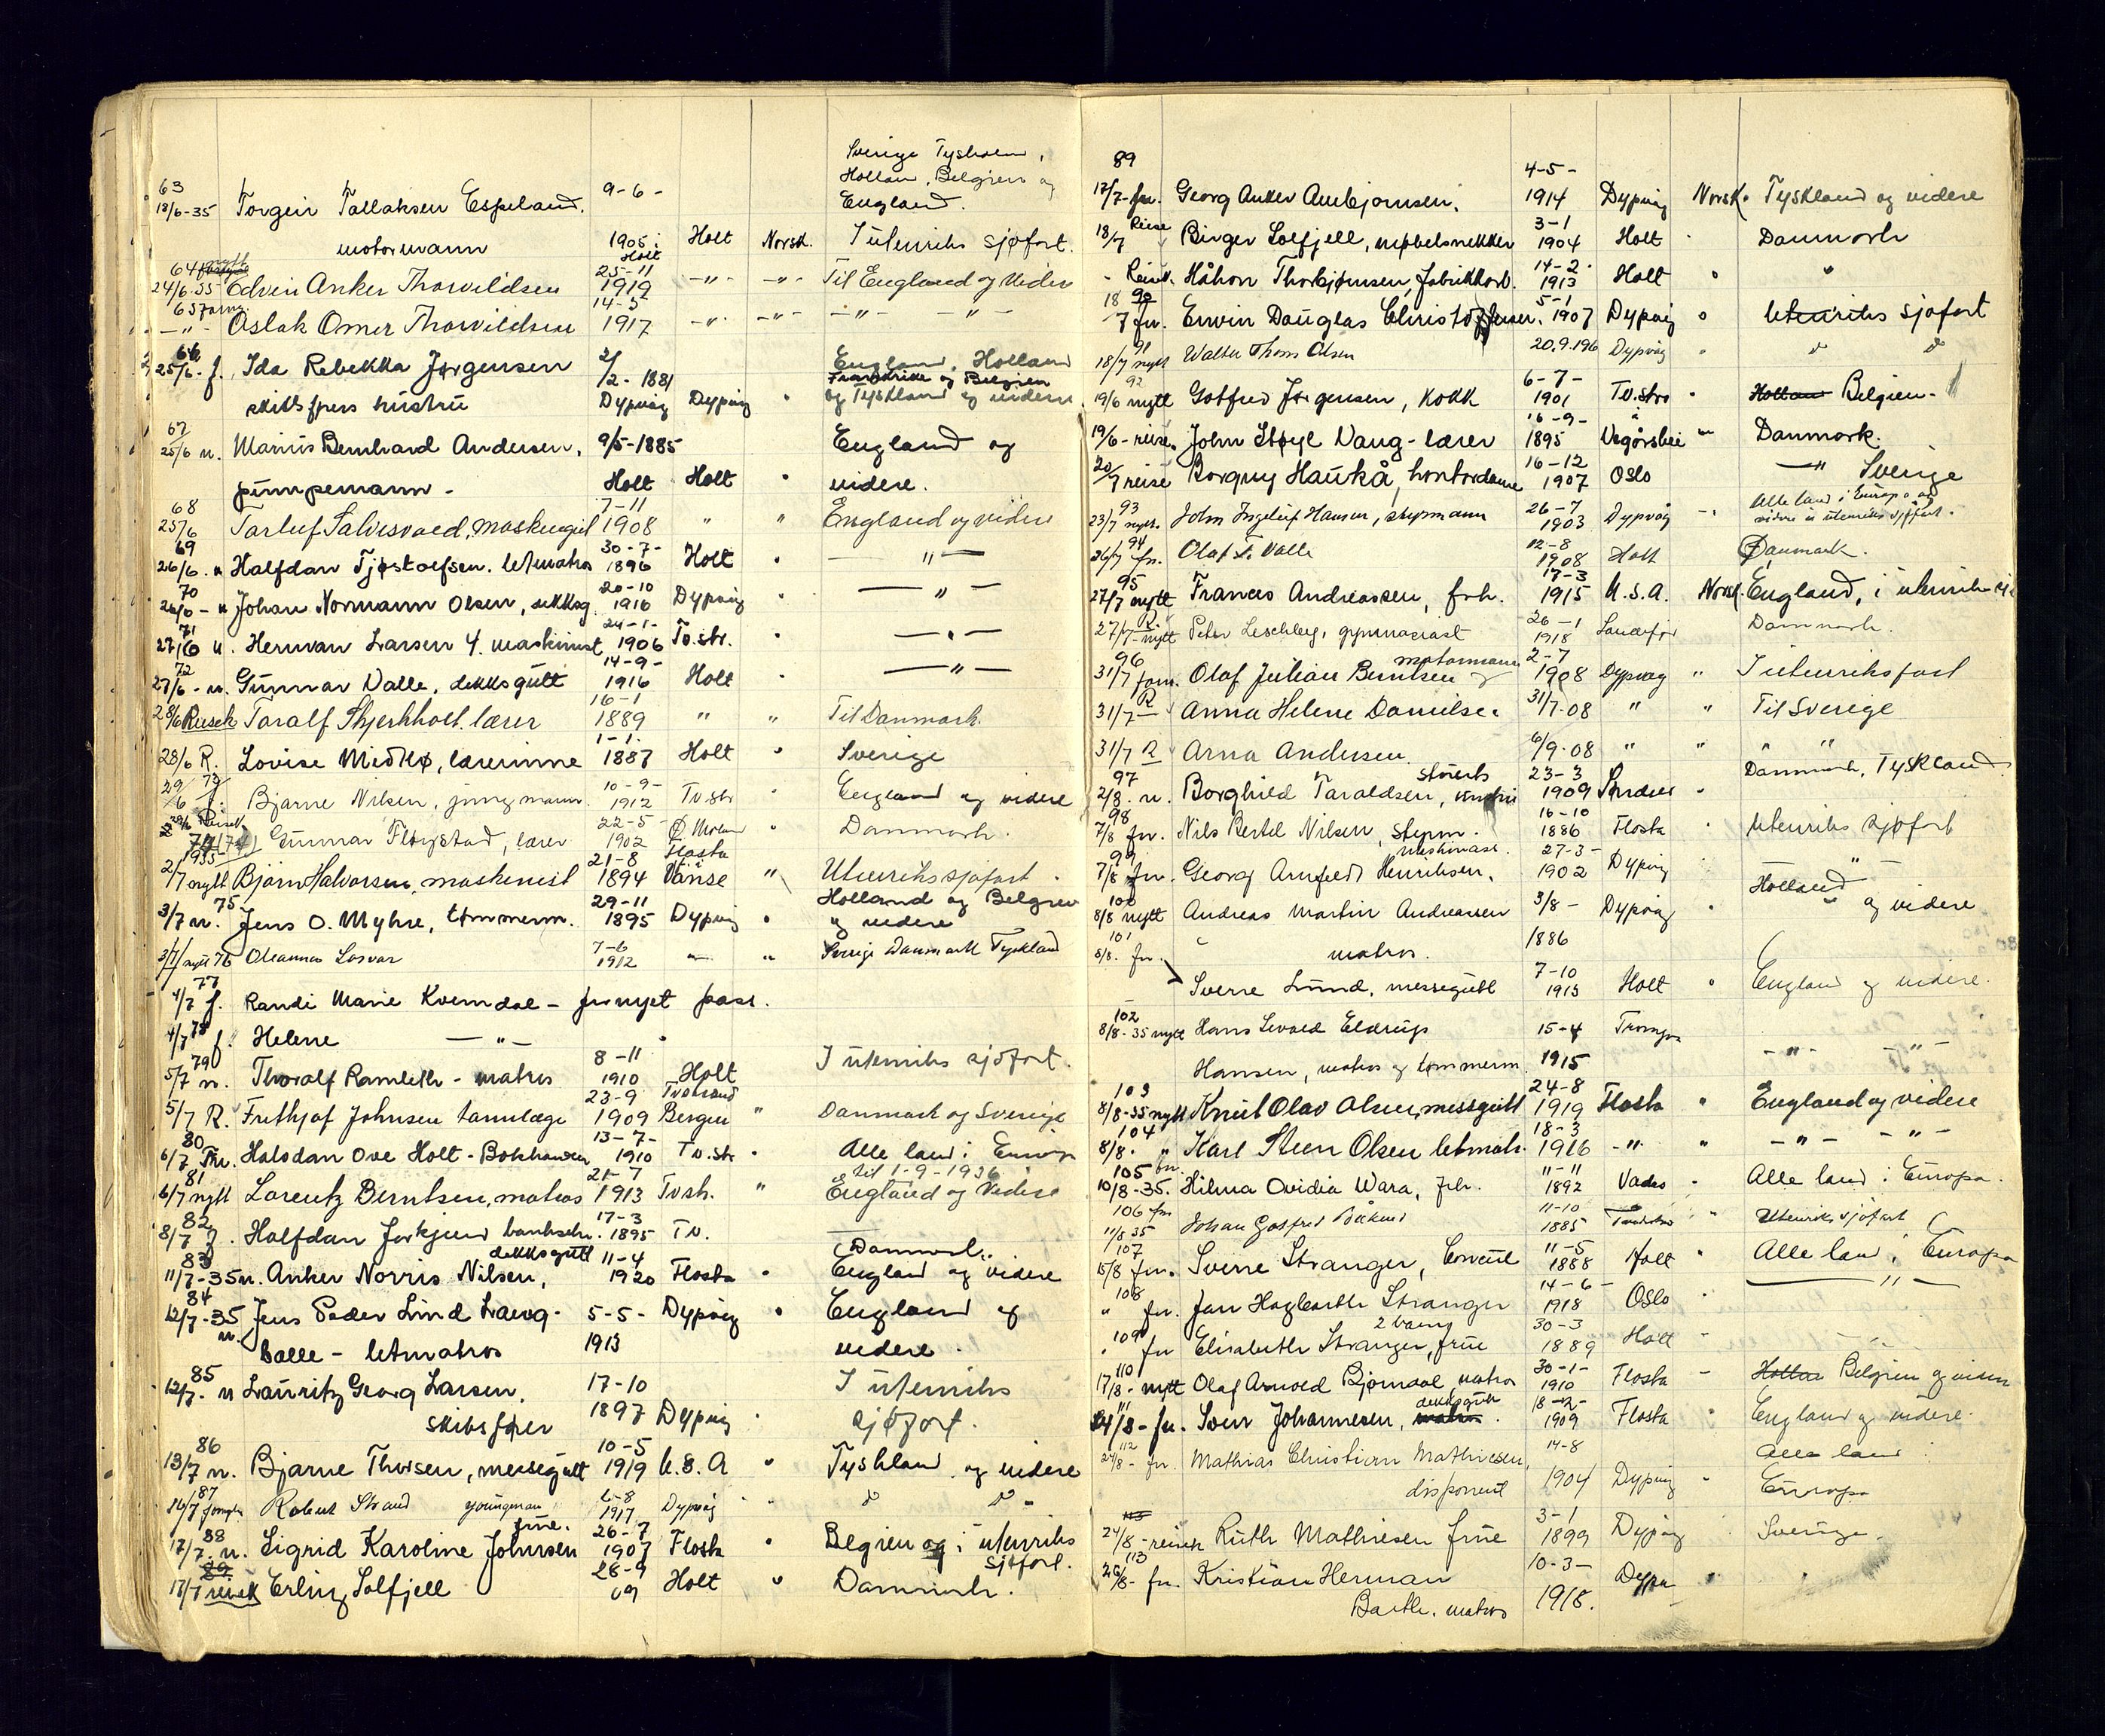 63 18/6-35 Torgeir Tallaksen Espeland. 9-6- Sverige Tyskland, Holland, Belgien og England.
motormann 1905 Holt Holt Norsk. I utenriks sjøfart.
64 nytt 24/6-35 Edvin Anker Thorvildsen 25-11 1919 -"- -"- Til England og videre
65 forny. -"- Aslak Omer Thorvildsen 14-5 1917 -"- -"- -"- -"-
66 25/6- f. Ida Rebekka Jørgensen 2/2-1881 England, Holland Frankrike og Belgien
skibsførers hustru Dypvåg Dypvåg " og Tyskland og videre.
67 25/6 n. Marius Bernhard Andersen, 9/5-1885 England og
pumpemann - Holt Holt " videre.
68 25/6 Tarluf Salvesvold, maskingutt 7-11 1908 " " England og videre
69 26/6. n Halfdan Tjøstolfsen. letmatros 30-7- 1896 Holt " — " —
70 26/6- n Johan Normann Olsen, dekksg. 20-10 1916 Dypvåg — " —
71 27/6 n. Herman Larsen 4. maskinist 24-1- 1906 Tv.str. " — " —
72 27/6- n. Gunnar Dalle, dekksgutt 14-9- 1916 Holt " — " —
28/6 Reisek Taralf Skjerkholt. lærer 16-1 1889 " " Til Danmark.
28/6 R. Lovise Midtbø, lærerinne 1-1- 1887 Holt " Sverige
29/6 73 f. Bjarne Nilsen, jungmann. 10-9- 1912 Tv.str " England og videre
29/6 Reisek (74) Gunnar Fløystad, lærer 22-5- 1902 Ø. Moland " Danmark.
1935 2/7 nytt Bjarne Halvorsen, maskinist 21-8 1894 Flosta Vanse " Utenriks sjøfart.
75 3/7 n. Jens O. Myhre, tømmerm. 29-11 1895 Dypvåg " Holland og Belgien og videre
3/7 nytt 76 Oleannes Losvar 7-6 1912 -"- " Sverige Danmark Tyskland
77 4/7 f. Randi Marie Kvemdal - fornyet pass.
78 4/7 f. Helene — " —
79 5/7 n. Thoralf Ramleth - matros 8-11 1910 Holt I utenriks sjøfart.
5/7 R. Frithjof Johnsen tannlæge 23-9 1909 Tvedestrand Bergen " Danmark og Sverige
80 6/7 Halvdan Ove Holt - Bokhandler 13-7- 1910 Tv.str " Alle land i Europa
til 1-9-1936
81 6/7 nytt Lorentz Berntsen, matros 21-7 1913 Tvstr. " England og Videre
82 8/7 f. Halfdan Jorkjend banksch. 17-3 1895 Tv. Danmark.
83 11/7-35 n. Anker Norris Nilsen, dekksgutt 11-4 1920 Flosta " England og videre
84 12/7-35 n. Jens Peder Lind Lang- 5-5- Dypvåg " England og
balle - letmatros 1913 videre.
85 12/7. n Lauritz Georg Larsen. 17-10 I utenriks
skibsfører 1897 Dypvåg " sjøfart.
86 13/7 n. Bjarne Thorsen, messegutt 10-5 1919 U.S.A " Tyskland og videre
87 16/7 fornyh Robert Strand youngman 6-8 1917 Dypvåg "
88 17/7. n. Sigrid Karoline Johnsen frue. 26-7 1907 Flosta " Belgien og i utenriks sjøfart.
89 17/7 reisek Erling Solfjell 28-9 09 Holt " Danmark.
89 17/7- fn. Georg Anker Aanbjørnsen. 4-5- 1914 Dypvåg Norsk. Tyskland og videre
18/7 Reise Birger Solfjell, møbelsnekker 3-1 1904 Holt " Danmark
- Reisek. Håkon Thorbjørnsen, fabrikkarb. 14-2- 1913 Holt " "
18/7 90 fn. Erwin Douglas Christoffersen. 5-1 1907 Dypvåg " Utenriks sjøfart
91 18/7 nytt Walter Thom Olsen 20.9.196 Dypvåg "
92 19/6 nytt Gotfred Jørgensen, kokk 6-7- 1901 Tv.str. " Holland Belgien-
19/6- reise. John Støyl Vaag - lærer 16-9- 1895 Vegårshei " Danmark.
20/7 reise Borgny Haukå, kontordame 16-12 1907 Oslo — " Sverige
93 23/7 nytt. John Ingeleif Hansen, styrmann 26-7 1903 Dypvåg -" Alle land i Europa og videre in utenriks sjøfart.
94 26/7 fn. Olaf T. Valle 12-8 1908 Holt Danmark.
95 27/7 nytt Frances Andreassen, frk. 17-3 1915 U.S.A. Norsk. England, i utenriks
27/7-nytt Peter Leschbly. gymnasiast 26-1 1918 Sandefjor Danmark.
96 31/7 forn. Olaf Julian Berntsen motormann 2-7 1908 Dypvåg " I utenriksfart
31/7 R Anna Helene Danielsen 31/7-08 " " Til Sverige
31/7 R Arna Andersen 6/9-08 " " " "
97 2/8. n. Borghild Taraldsen, stuerts 23-3 1909 " Danmark, Tyskland
98 7/8 fn. Nils Bertel Nilsen, styrm. 16-10 1886 Flosta " Utenriks sjøfart
99 7/8 fn. Georg Arnfeldt Henriksen. maskinass. 27-3- 1902 Dypvåg " "
100 8/8 nytt Andreas Martin Andreassen 3/8- Dypvåg " Holland og videre
matros. 1886
101 8/8. fn. Sverre Lund, messegutt 7-10 1915 Holt " England og videre.
102 8/8-35 nytt Hans Sevald Eldrups 15-4 Tromøy
Hansen, matros og tømmerm. 1915 -"- -"-
103 8/8-35 nytt Knut Olav Olsen, messgutt 24-8 1919 Flosta " England og videre
104 8/8. " Karl Steen Olsen letmatr. 18-3 1916 -"- " -"- -"-
105 fn. 10/8-35. Hilma Ovidia Wara, frk. 11-11 1892 Vadsø " Alle land i Europa.
106 fn 11/8 35 Johan Gotfred 11-10 1885 " Utenriks sjøfart
107 15/8 fn. Sverre Stranger, Consul 11-5 1888 Holt " Alle land i Europa
108 " fn. Jan Hagbarth Stranger 14-6- 1918 Oslo " — " —
109 " fn Elisabeth Stranger, frue 2 barn 30-3 1889 Holt "
110 17/8- nytt Olaf Arnold Bjørndal, matros 30-1- 1910 Flosta " Holland Belgien og videre
111 24/8- fn. Sven Johannesen, dekksgutt matros. 18-12- 1909 Flosta " England og videre.
112 24/8- fn. Mathias Christian Mathiesen, 14-8 Alle land i
disponent 1904 Dypvåg " Europa
113 24/8 -reisek Ruth Mathiesen frue 3-1 1899 Dypvåg " Sverige
113 26/8- fn. Kristian Herman 10-3- Dypv " "
Barth. matros 1918.